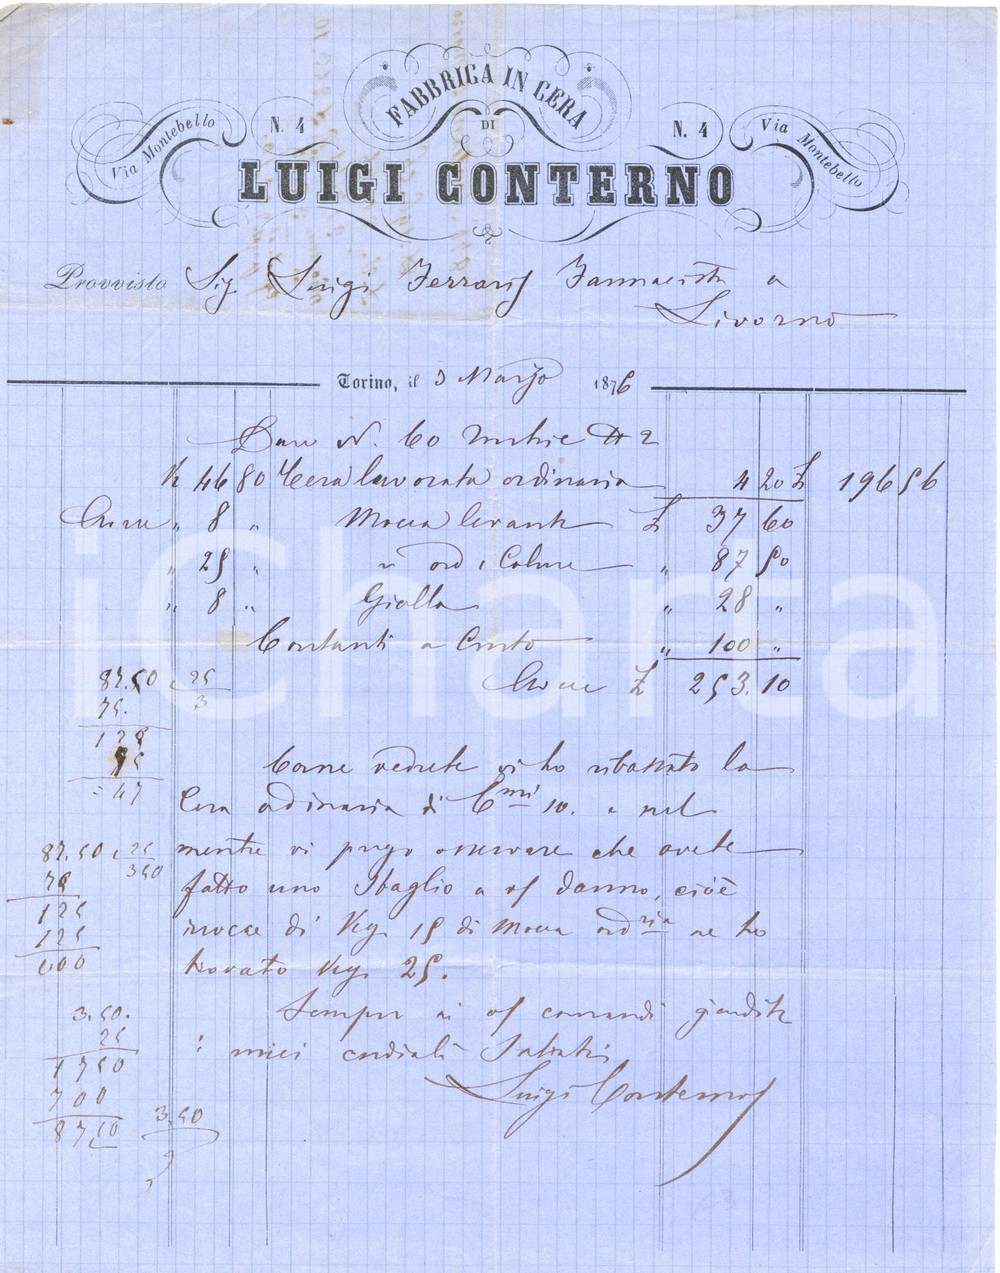 FABBRICA IN CERA
DI
Via Montebello N. 4
N. 4 Via Montebello
LUIGI CONTERNO
Provvisto Sig Luigi Ferraris Farmacista a
Livorno
Torino, il 3 Marzo 1876
N. 60 2
K 46 80 Cera lavorata ordinaria 4 20 £ 196 56
" 8 " levante £ 37 60
" 25 " " ord " 87 50
" 8 " Gialla " 28 "
Contanti a Conto " 100 "
£ 253.10
87.50 25
75. 3
125
= 47
Come vedrete vi ho ribassato la
Cera ordinaria di Cmi 10. e nel
mentre vi prego osservare che avete
fatto uno Sbaglio a vs danno, cioè
invece di Kg. 15 di ordria ne ho
trovato Kg. 25.
87.50 25
75 350
125
125
000
Sempre ai vs comandi gradite
i miei cordiali Saluti
Luigi Conterno
3.50.
25
1750
700
87.50 3.50
iCharta